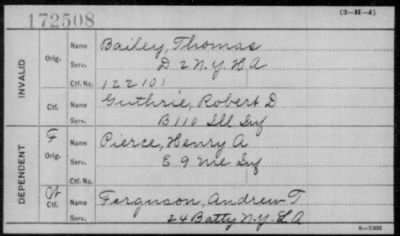 172508
(3-H-4)
INVALID
Orig.
Name Bailey, Thomas
Serv. D 2 N.Y. H A
Ctf. No. 122101
Ctf.
Name Guthrie, Robert D
Serv. B 110 Ill Inf
DEPENDENT
F
Orig.
Name Pierce, Henry A
Serv. E 9 Me Inf
Ctf. No.
W
Ctf.
Name Ferguson, Andrew T
Serv. 24 Batty N.Y. L A